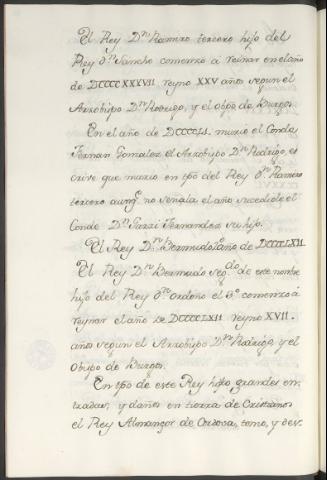 El Rey D.n Ramiro tercero hijo del
Rey d.n Sancho comenzó à reinar en el año
de DCCCCXXXVII reyno XXV años segun el
Arzobispo D.n Rodrigo, y el obpo de Burgos.
En el año de DCCCCLI. murio el Conde
Fernan Gonzalez el Arzobispo D.n Rodrigo, es
crive que murio en tpo del Rey d.n Ramiro
tercero aunq.e no señala el año sucediole el
Conde D.n Garzi Fernandez su hijo.
El Rey D.n Bermudo año de DCCCCLXII.
El Rey D.n Bermudo seg.do de este nombre
hijo del Rey d.n Ordoño el 3.o comenzó à
reynar el año de DCCCCLXII reyno XVII.
años segun el Arzobispo D.n Rodrigo y el
Obispo de Burgos.
En tpo de este Rey hizo grandes en,
tradas, y daños en tierra de Cristianos
el Rey Almanzor de Cordova, tomo, y des.